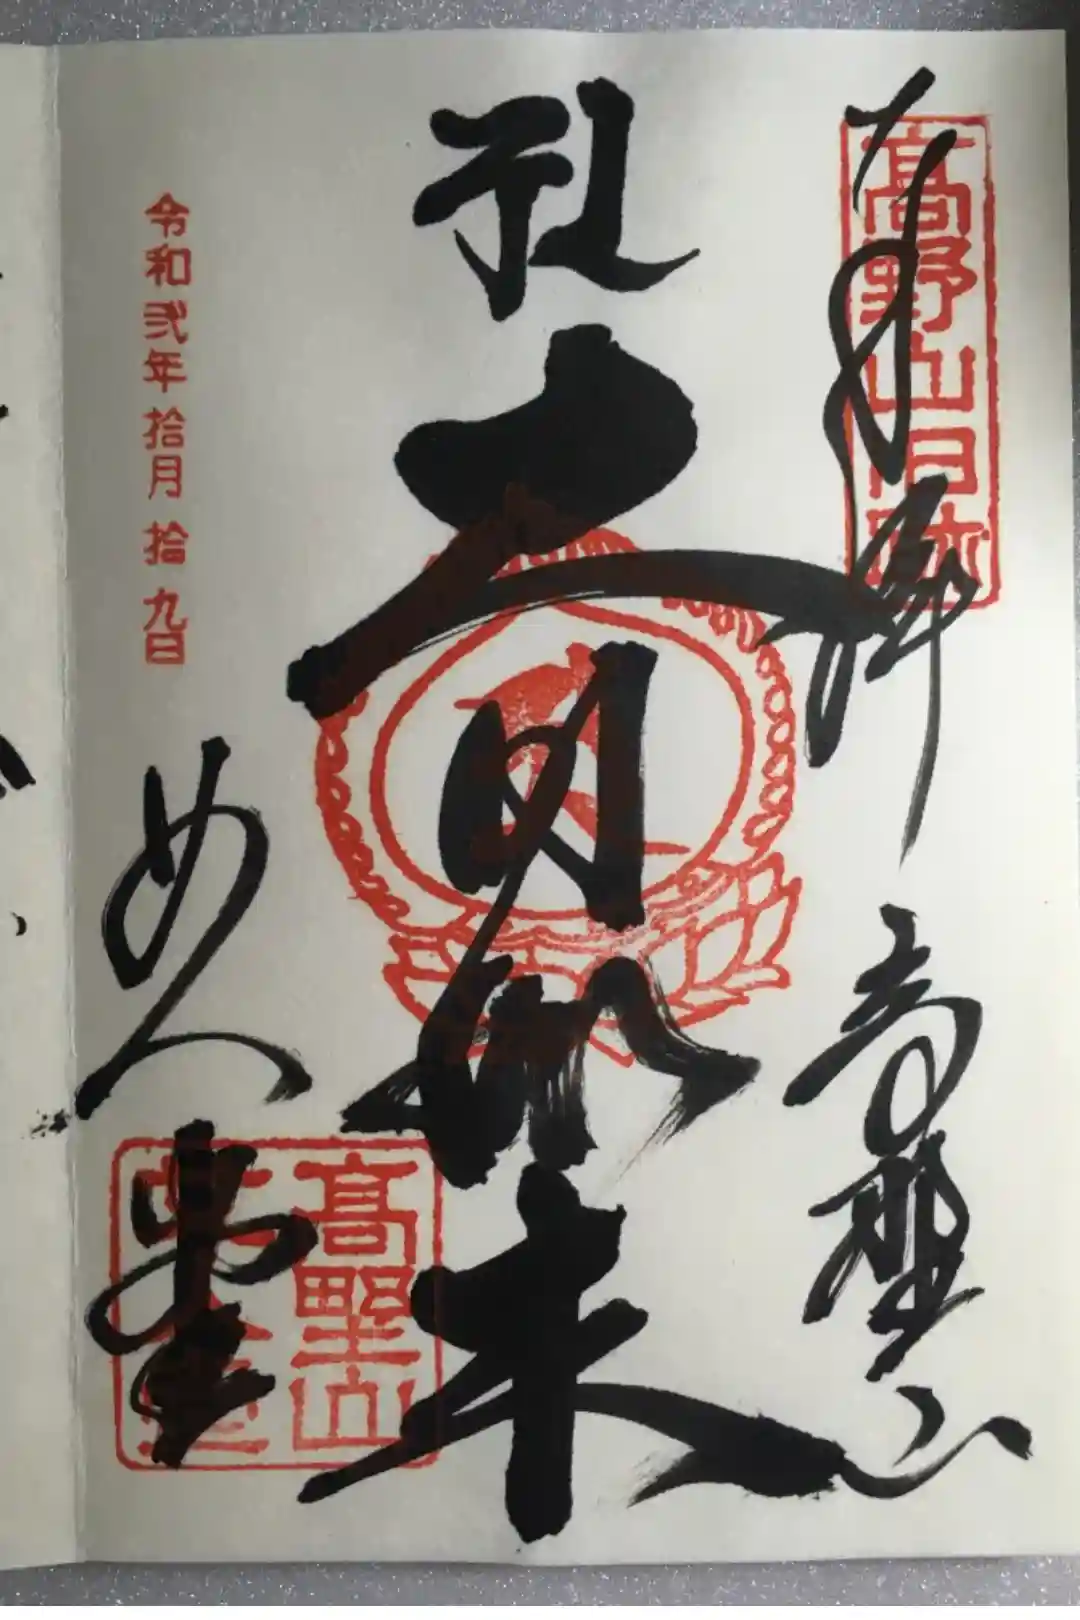 奉拝 高野山
高野山旧跡
大日如来
令和弐年拾月拾九日
女人堂
高野山